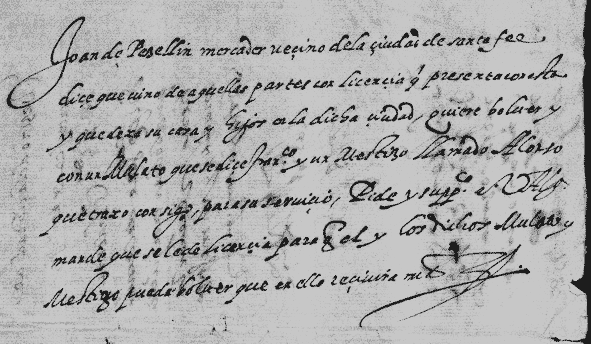 Joan de Pesellin mercader veçino de la çiudad de santa fee
dice que vino de aquellas partes con licencia q̃ presenta con esta
y que dexo su casa y hijos en la dicha çiudad, quiere bolver y
con un Mulato que se dice franco y un Mestizo llamado Alonso
que traxo consigo, para su serviçio, Pide y suppco a V Al
mande que se le de licencia para q̃ el y los dichos Mulato y
Mestizo pueda bolver que en ello reçivira md